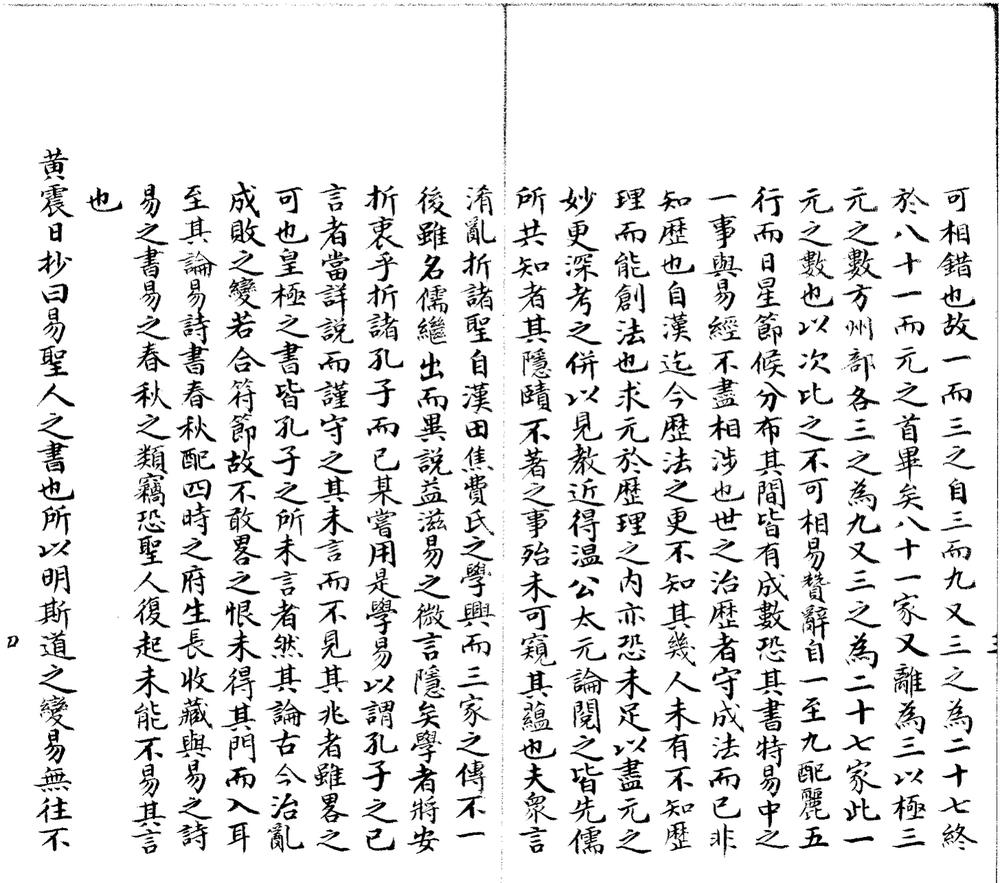 可相錯也故一而三之自三而九又三之為二十七終
於八十一而元之首畢矣八十一家又離為三以極三
元之數方州部各三之為九又三之為二十七家此一
元之數也以次比之不可相易贊辭自一至九配麗五
行而日星節候分布其間皆有成數恐其書特易中之
一事與易經不盡相涉也世之治歷者守成法而已非
知歷也自漢迄今歷法之更不知其幾人未有不知歷
理而能創法也求元於歷理之內亦恐未足以盡元之
妙更深考之併以見教近得温公太元論閱之皆先儒
所共知者其隱賾不著之事殆未可窺其蘊也夫衆言
淆亂折諸聖自漢田焦費氏之學興而三家之傳不一
後雖名儒繼出而異說益滋易之微言隱矣學者將安
折衷乎折諸孔子而已某嘗用是學易以謂孔子之已
言者當詳說而謹守之其未言而不見其兆者雖畧之
可也皇極之書皆孔子之所未言者然其論古今治亂
成敗之變若合符節故不敢畧之恨未得其門而入耳
至其論易詩書春秋配四時之府生長收藏與易之詩
易之書易之春秋之類竊恐聖人復起未能不易其言
也
黄震日抄曰易聖人之書也所以明斯道之變易無往不